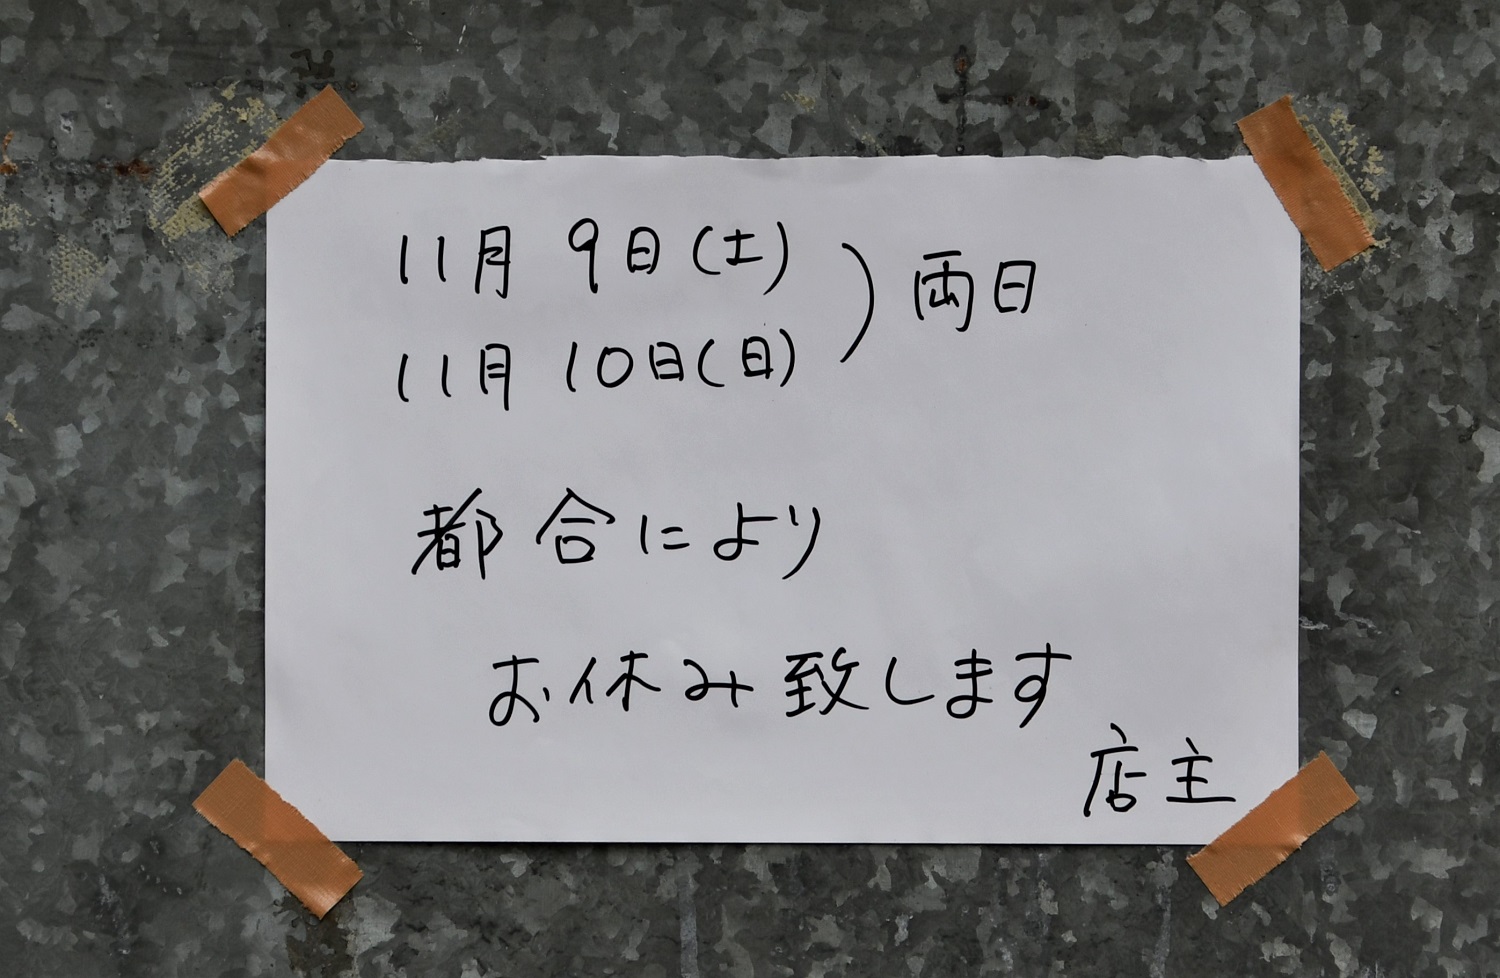 11月 9日(土)
11月 10日(日)
) 両日
都合により
お休み致します
店主